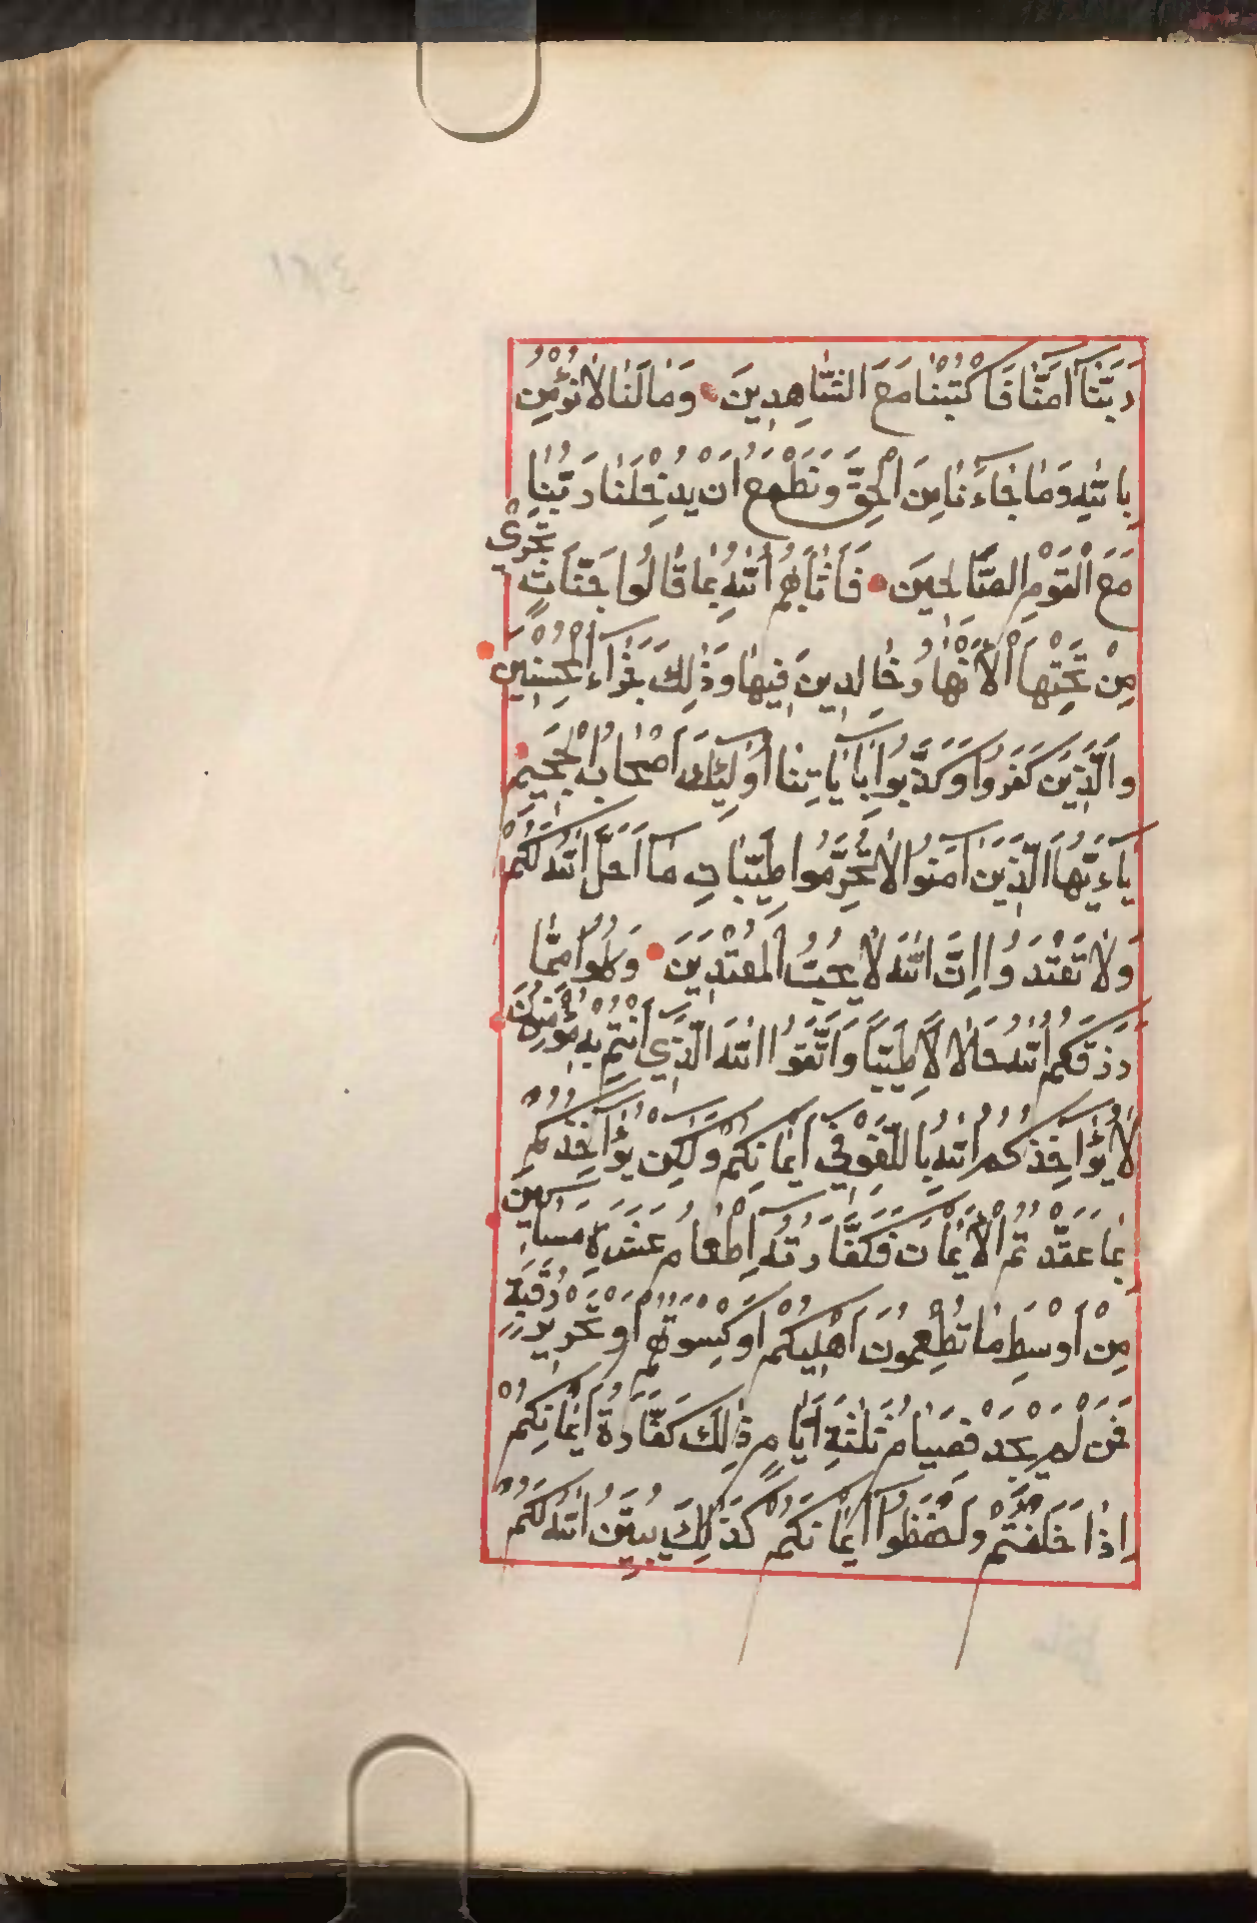 رَبَّنَا آمَنَّا فَاكْتُبْنَا مَعَ الشَّاهِدِينَ وَمَا لَنَا لَا نُؤْمِنُ
بِاللَّهِ وَمَا جَاءَنَا مِنَ الْحَقِّ وَنَطْمَعُ أَنْ يُدْخِلَنَا رَبُّنَا
مَعَ الْقَوْمِ الصَّالِحِينَ فَأَثَابَهُمُ اللَّهُ بِمَا قَالُوا جَنَّاتٍ تَجْرِي
مِنْ تَحْتِهَا الْأَنْهَارُ خَالِدِينَ فِيهَا وَذَلِكَ جَزَاءُ الْمُحْسِنِينَ
وَالَّذِينَ كَفَرُوا وَكَذَّبُوا بِآيَاتِنَا أُولَئِكَ أَصْحَابُ الْجَحِيمِ
يَاءَيُّهَا الَّذِينَ آمَنُوا لَا تُحَرِّمُوا طَيِّبَاتِ مَا أَحَلَّ اللَّهُ لَكُمْ
وَلَا تَعْتَدُوا إِنَّ اللَّهَ لَا يُحِبُّ الْمُعْتَدِينَ وَكُلُوا مِمَّا
رَزَقَكُمُ اللَّهُ حَلَالًا طَيِّبًا وَاتَّقُوا اللَّهَ الَّذِي أَنْتُمْ بِهِ مُؤْمِنُونَ
لَا يُؤَاخِذُكُمُ اللَّهُ بِاللَّغْوِ فِي أَيْمَانِكُمْ وَلَكِنْ يُؤَاخِذُكُمْ
بِمَا عَقَّدْتُمُ الْأَيْمَانَ فَكَفَّارَتُهُ إِطْعَامُ عَشَرَةِ مَسَاكِينَ
مِنْ أَوْسَطِ مَا تُطْعِمُونَ أَهْلِيكُمْ أَوْ كِسْوَتُهُمْ أَوْ تَحْرِيرُ رَقَبَةٍ
فَمَنْ لَمْ يَجِدْ فَصِيَامُ ثَلَثَةِ أَيَّامٍ ذَلِكَ كَفَّارَةُ أَيْمَانِكُمْ
إِذَا حَلَفْتُمْ وَاحْفَظُوا أَيْمَانَكُمْ كَذَلِكَ يُبَيِّنُ اللَّهُ لَكُمْ